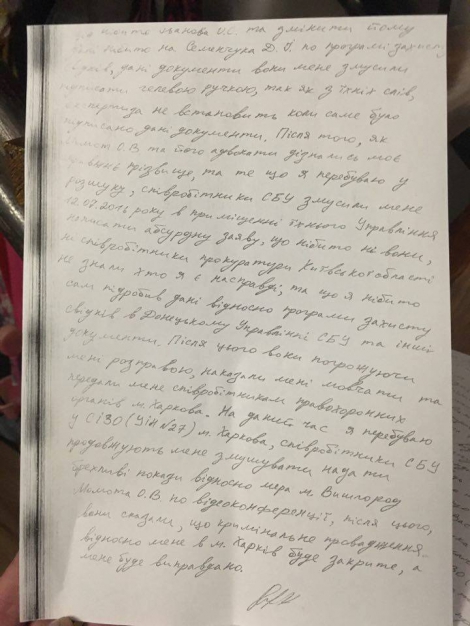 та змінити йому
на Семенчука Д. І. по програмі захисту
дані документи вони мене змусили
гелевою ручкою, так як з їхніх слів,
не встановить коли саме було
підписано дані документи. Після того, як
Момот О.В та його адвокати дізнались моє
прізвище, та те що я перебуваю у
розшуку, співробітники СБУ змусили мене
12.07.2016 року в приміщенні їхнього Управління
написати абсурдну заяву, що нібито ні вони,
ні співробітники прокуратури Київської області
не знали хто я є насправді, та що я нібито
сам підробив дані відносно програми захисту
свідків в Донецькому Управлінні СБУ та інші
документи. Після цього вони погрожуючи
мені розправою, наказали мені мовчати та
передали мене співробітникам правоохоронних
органів м. Харкова. На даний час я перебуваю
у СІЗО (УІН №27) м. Харкова, співробітники СБУ
продовжують мене змушувати надати
покази відносно мера м. Вишгород
Момота О.В по відеоконференції, після цього,
вони сказали, що кримінальне провадження
відносно мене в м. Харків буде закрите, а
мене буде виправдано.